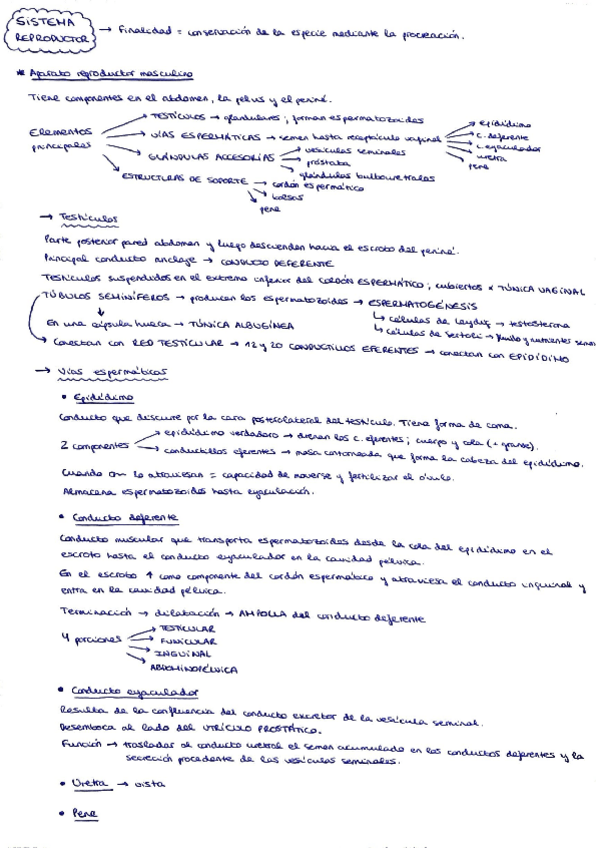 SISTEMA REPRODUCTOR → Finalidad = conservación de la especie mediante la procreación.
* Aparato reproductor masculino
Tiene componentes en el abdomen, la pelvis y el periné.
Elementos principales
→ TESTÍCULOS → glandulares; forman espermatozoides
→ VÍAS ESPERMÁTICAS → semen hasta receptáculo vaginal
→ epidídimo
→ c. deferente
→ c. eyaculador
→ uretra
→ pene
→ GLÁNDULAS ACCESORIAS
→ vesículas seminales
→ próstata
→ glándulas bulbouretrales
→ ESTRUCTURAS DE SOPORTE
→ cordón espermático
→ bolsas
→ pene
→ Testículos
Parte posterior pared abdomen y luego descienden hacia el escroto del periné.
Principal conducto anclaje → CONDUCTO DEFERENTE
Testículos suspendidos en el extremo inferior del CORDÓN ESPERMÁTICO; cubiertos x TÚNICA VAGINAL
TÚBULOS SEMINÍFEROS → producen los espermatozoides → ESPERMATOGÉNESIS
↳ células de Leydig → testosterona
↳ células de Sertoli → fluido y nutrientes
En una cápsula hueca → TÚNICA ALBUGÍNEA
Conectan con RED TESTICULAR → 12 y 20 CONDUCTILLOS EFERENTES → conectan con EPIDÍDIMO
→ Vías espermáticas
• Epidídimo
Conducto que discurre por la cara posterolateral del testículo. Tiene forma de coma.
2 componentes
→ epidídimo verdadero → drenan los c. eferentes; cuerpo y cola (+ grande).
→ conductillos eferentes → masa contorneada que forma la cabeza del epidídimo.
Cuando lo atraviesan = capacidad de moverse y fertilizar el óvulo.
Almacena espermatozoides hasta eyaculación.
• Conducto deferente
Conducto muscular que transporta espermatozoides desde la cola del epidídimo en el
escroto hasta el conducto eyaculador en la cavidad pélvica.
En el escroto ↑ como componente del cordón espermático y atraviesa el conducto inguinal y
entra en la cavidad pélvica.
Terminación → dilatación → AMPOLLA del conducto deferente
4 porciones
→ TESTICULAR
→ FUNICULAR
→ INGUINAL
→ ABDOMINOPÉLVICA
• Conducto eyaculador
Resulta de la confluencia del conducto excretor de la vesícula seminal.
Desemboca al lado del UTRÍCULO PROSTÁTICO.
Función → trasladar al conducto uretral el semen acumulado en los conductos deferentes y la
secreción procedente de las vesículas seminales.
• Uretra → vista
• Pene